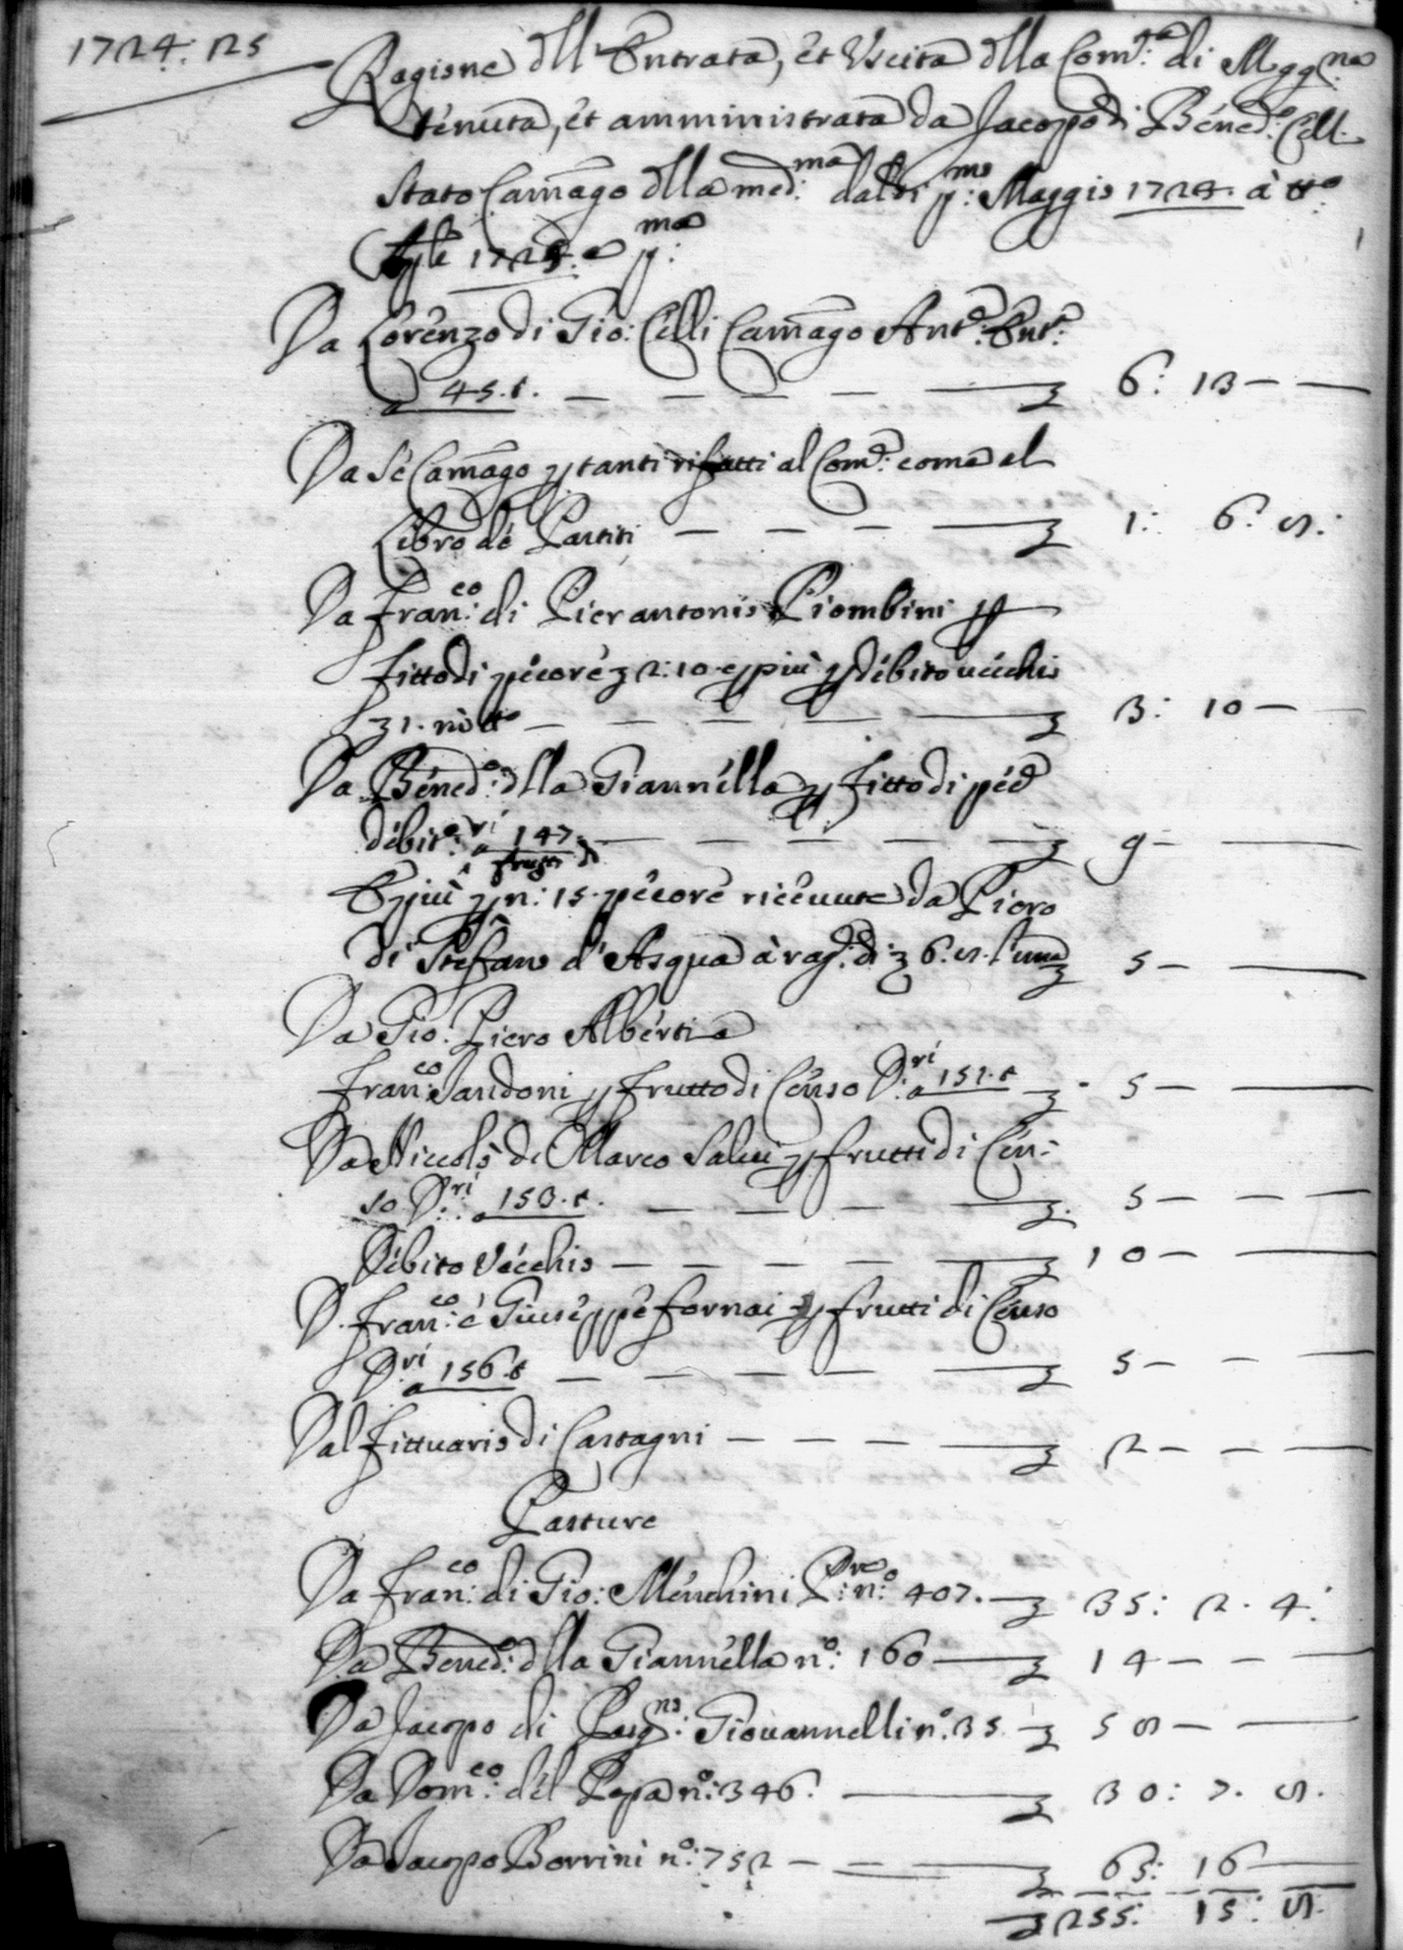 1724: 25
Ragione dll Entrata, et Uscita dlla Com.ta di Mgg.na
tenuta, et amministrata da Jacopo di Bened.o Cell.
stato Camago dlla med.ma dal di p.mo Maggio 1724. à tt.o
Aple 1725. e p.ma
Da Lorenzo di Gio: Celli Camago Ant.e Ent.a
a 45.t. — — — — 6: 13 — —
Da Se Camago p tanti rifatti al Com.e come al
Libro de Partiti — — — — 1: 6: 8:
Da Fran.co di Pierantonio Piombini p
fitto di pecore 2:10 e più p debito vecchio
1. — — — — 3: 10 —
Da Bened.o dlla Giannella p fitto di
debit.ri a 147 — — — — 9 — —
E più p n: 15. pecore ricevute da Piero
di Stefano d'Asqua à rag.e di 6.8. l'una 5 — —
Da Gio: Piero Alberti a
Fran.co Sandoni p frutto di Censo D.ri a 151.t 5 — —
Da Niccolò di Marco Salvi p frutti di Cen:
so D.ri a 153.t. — — — — 5 — — —
Debito Vecchio — — — — 10 — —
D. Fran.co e Giuseppe Fornai p frutti di Censo
D.ri a 156.t — — — — 5 — — —
Dal fittuario di Castagni — — — — 2 — — —
Pasture
Da Fran.co di Gio: Menchini P.re n.o 407. — 35: 2. 4:
Da Bened.o dlla Giannella n.o: 160 — 14 — — —
Da Jacopo di Pasq.no Giovannelli n.o 35 — 58 — —
Da Dom.co del Papa n.o: 346. — 30: 7. 8.
Da Jacopo Borrini n.o: 752 — — — 65: 16 —
255: 15: 8.